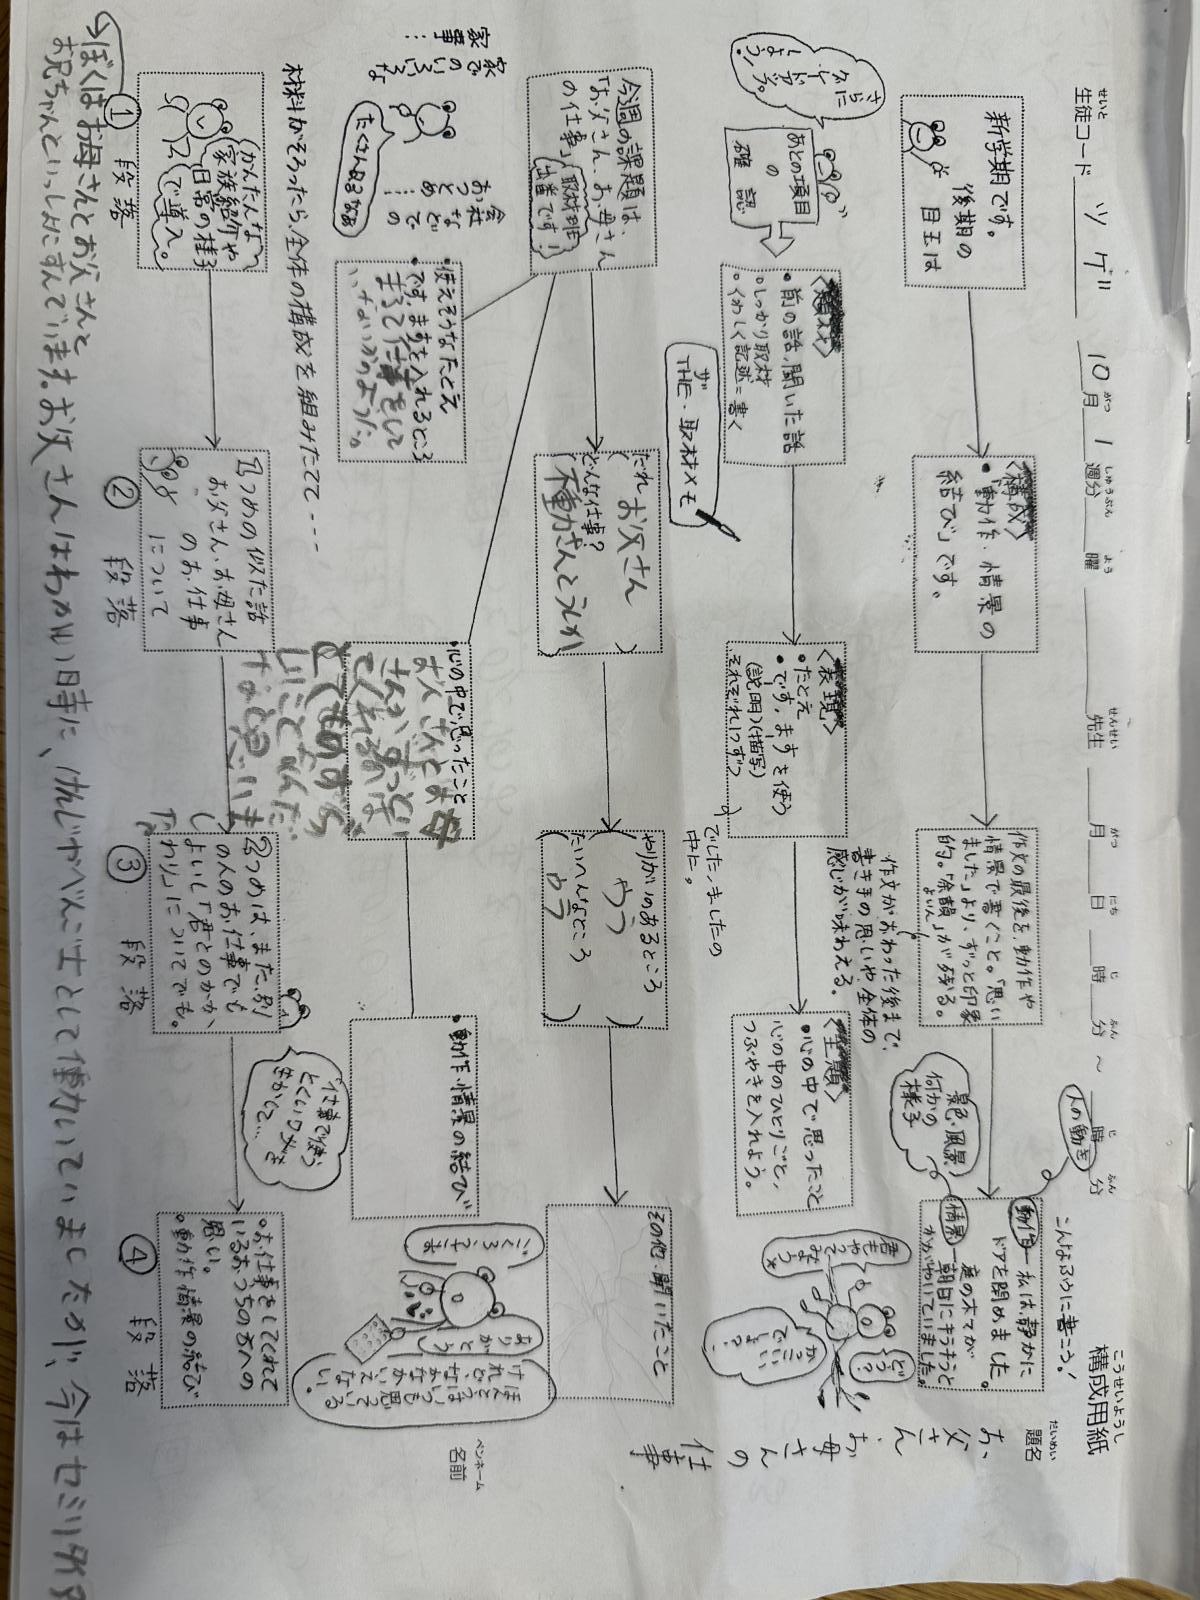 せいと
生徒コード ツゲ 10月1週分 曜 先生 月 日 時 分～ 時 分
こうせいようし
構成用紙
だいめい
題名
お父さん、お母さんの仕事
ペンネーム
名前
新学期です。
後期の
目玉は
〈構成〉
・「動作・情景の
結び」です。
作文の最後を、動作や
情景で書くこと。「思い
ました」より、ずっと印象
的。「余韻」が残る。
よいん
作文がおわった後まで、
書き手の思いや、全体の
感じが味わえる。
こんなふうに書こう！
動作―私は、静かに
ドアを閉めました。
情景―庭の木々が
朝日にキラキラと
かがやいていました。
人の動き
景色・風景
何かの
様子
さらに
グレード
アップ
しよう！
あとの項目
の
確認
〈題材〉
・前の話、聞いた話
・しっかり取材
・くわしく記述＝書く
ザ
THE・取材メモ
〈表現〉
・たとえ
・です、ますを使う
(説明)(描写)
それぞれ1つずつ
でした、ましたの
中に。
〈主題〉
・心の中で思ったこと
心の中のひとりごと、
つぶやきを入れよう。
君もやって
みよう
どう？
かっこいい
でしょ？
今週の課題は、
「お父さん、お母さん
の仕事」取材用
出番です！
だれ
お父さん
どんな仕事？
やりがいのあるところ
たいへんなところ
その他・聞いたこと
家でのいろいろな
家事…
会社
などでの
おつとめ…
たくさんあるなあ
・使えそうなたとえ
です、ますを入れるところ
・心の中で思ったこと
お父さんとお母
さんがずっとい
てくれるのは
とてもめずら
しいことなんだ
なと思いま
した。
・動作・情景の結び
ごくろうさま
ありがとう
ほんとうは、いつも思っている
けれど、なかなかいえない。
材料がそろったら、全体の構成を組みたてて---
かんたんな
家族紹介や
日常の様子
で導入。
① 段落
1つめの似た話
お父さん、お母さん
のお仕事
について
② 段落
2つめは、また、別
の人のお仕事でも
よいし「君とのかか
わり」についてでも。
③ 段落
仕事で使う
とくいワザを
生かして…
・お仕事をしてくれて
いるおうちの方への
思い。
・動作・情景の結び
④ 段落
ぼくはお母さんとお父さんと
お兄ちゃんといっしょにすんでいます。お父さんはわかい日時に、けんじやべんご士として働いていましたが、今はセミリタイ